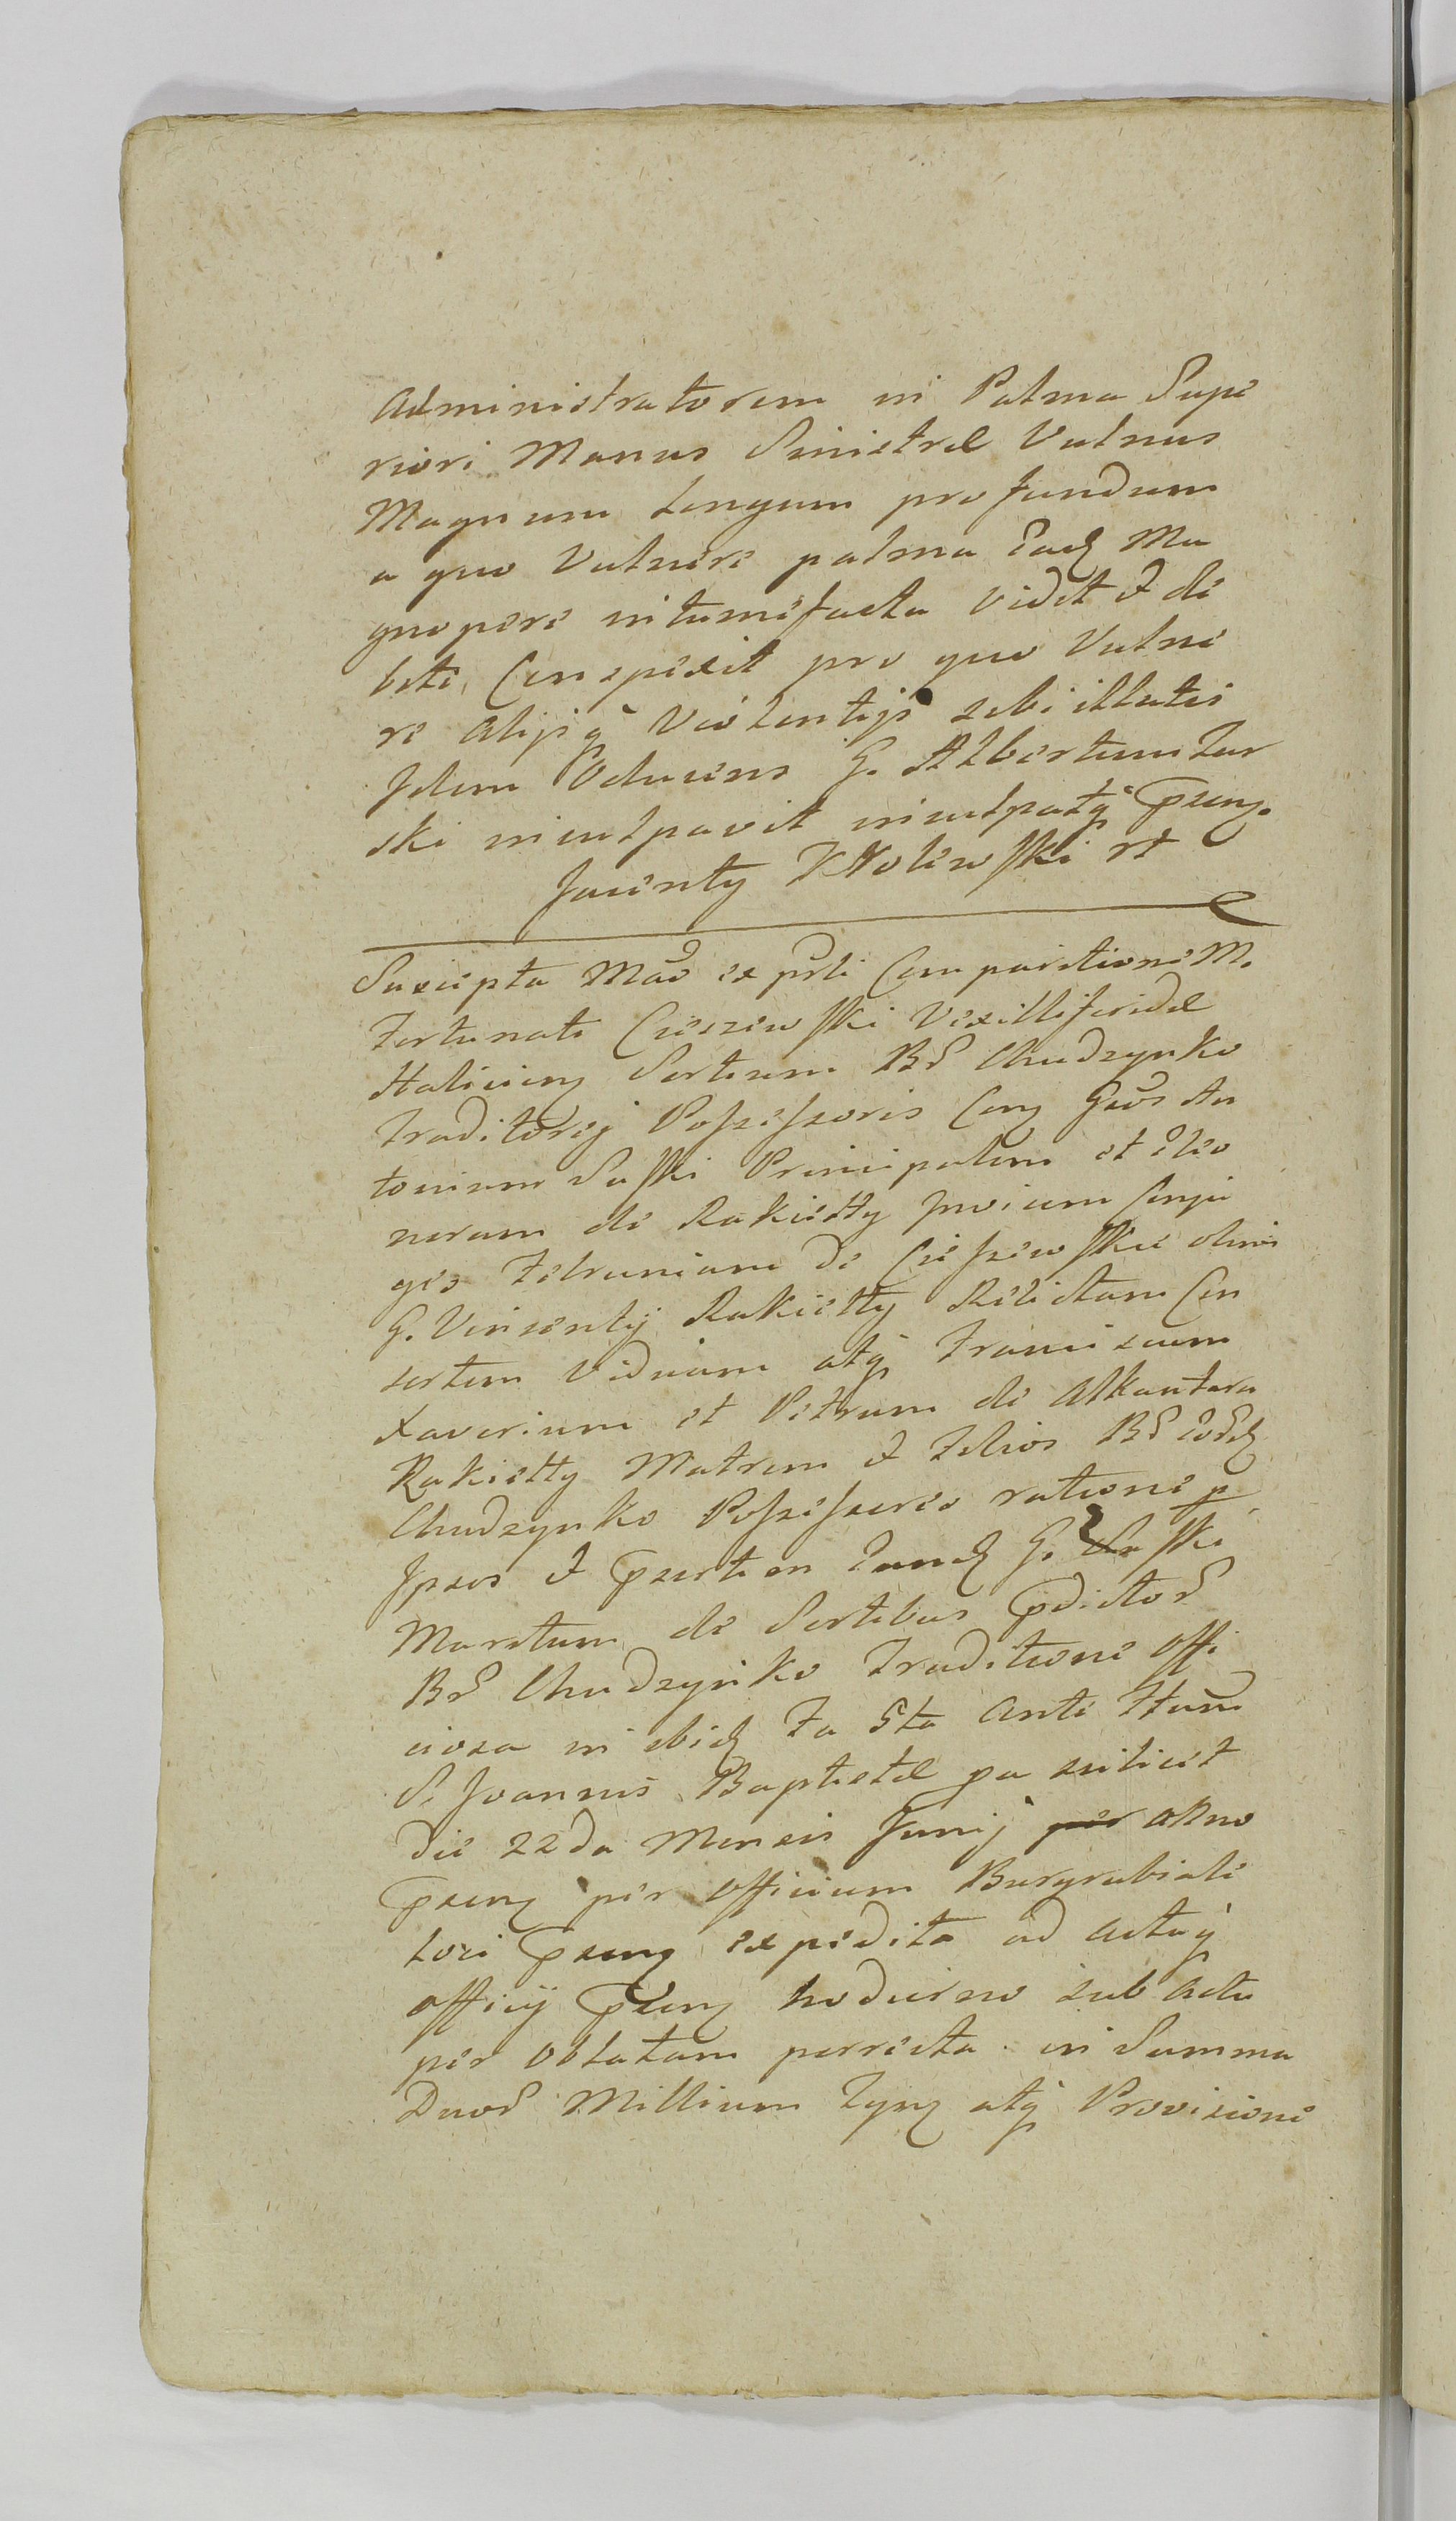 Administratorem in Palma Supe
riori Manus Sinistræ Vulnus
Magnum Longum profundum
a quo Vulnere palma Eadq Ma
gnopere intumefacta vidit et de
bite Conspexit pro quo Vulne
re alijsq Violentijs sibi illatis
Idem Oducens G. Albertum Zur
ski inculpavit inculpatq pnsenq.
Jacenty Wolewski st
Suscepta Mao ex pñti Comparitione M.
Fortunati Cieszewski Vexilliferidæ
Haliciens Sortium BB Chudzynko
Traditorij Possessoris Conq Gsos An
tonium Saski Principalem et Eleo
noram de Rakietty Juvicem Conju
ges Zebruniam de Cieszewskie olim
G. Vincentij Rakietty Relictam Con
sortem Viduam atq Franciscum
Xaverium et Petrum de Alkantara
Rakietty Matrem et Filios BB Eordq
Chudzynko Possessores ratione p
Ipsos et psertim Eundq G. Saski
Maritum de Sortibus pdictor
BB Chudzynko Traditione Offi
ciosa in ibidq Fa 5ta Ante Ftum
S. Joannis Baptistæ pa scilicet
die 22da Mensis Junij Anno
psenq per Officium Burgrabiale
loci psenq expedita ad Actaq
Officij psenq hodierno sub Actu
per oblatam porrecta in Summa
Duor Millium Fpnq atq Provisione